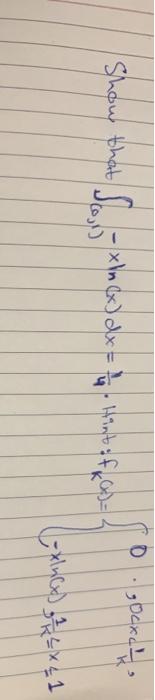 Show that ∫_(0,1) -xln(x)dx = 1/4. Hint: f_k(x) = { 0 , 0<x<1/k,
-xln(x), 1/k ≤ x ≤ 1